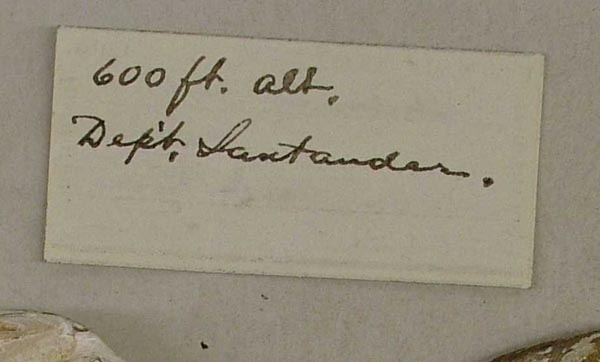 600 ft. alt.
Dep't. Santander.